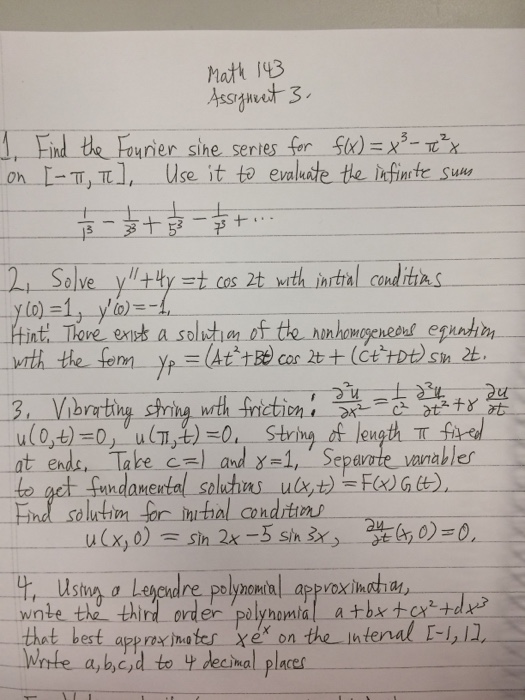 Math 143
Assignment 3.
1. Find the Fourier sine series for f(x) = x³ - π²x
on [-π, π]. Use it to evaluate the infinite sum
1/1³ - 1/3³ + 1/5³ - 1/7³ + ...
2. Solve y'' + 4y = t cos 2t with initial conditions
y(0) = 1, y'(0) = -1.
Hint: There exists a solution of the nonhomogeneous equation
with the form yₚ = (At² + Bt) cos 2t + (Ct² + Dt) sin 2t.
3. Vibrating string with friction: ∂²u/∂x² = 1/c² ∂²u/∂t² + γ ∂u/∂t
u(0,t) = 0, u(π,t) = 0. String of length π fixed
at ends. Take c=1 and γ=1. Separate variables
to get fundamental solutions u(x,t) = F(x)G(t).
Find solution for initial conditions
u(x,0) = sin 2x - 5 sin 3x, ∂u/∂t (x,0) = 0.
4. Using a Legendre polynomial approximation,
write the third order polynomial a + bx + cx² + dx³
that best approximates xeˣ on the interval [-1, 1].
Write a, b, c, d to 4 decimal places